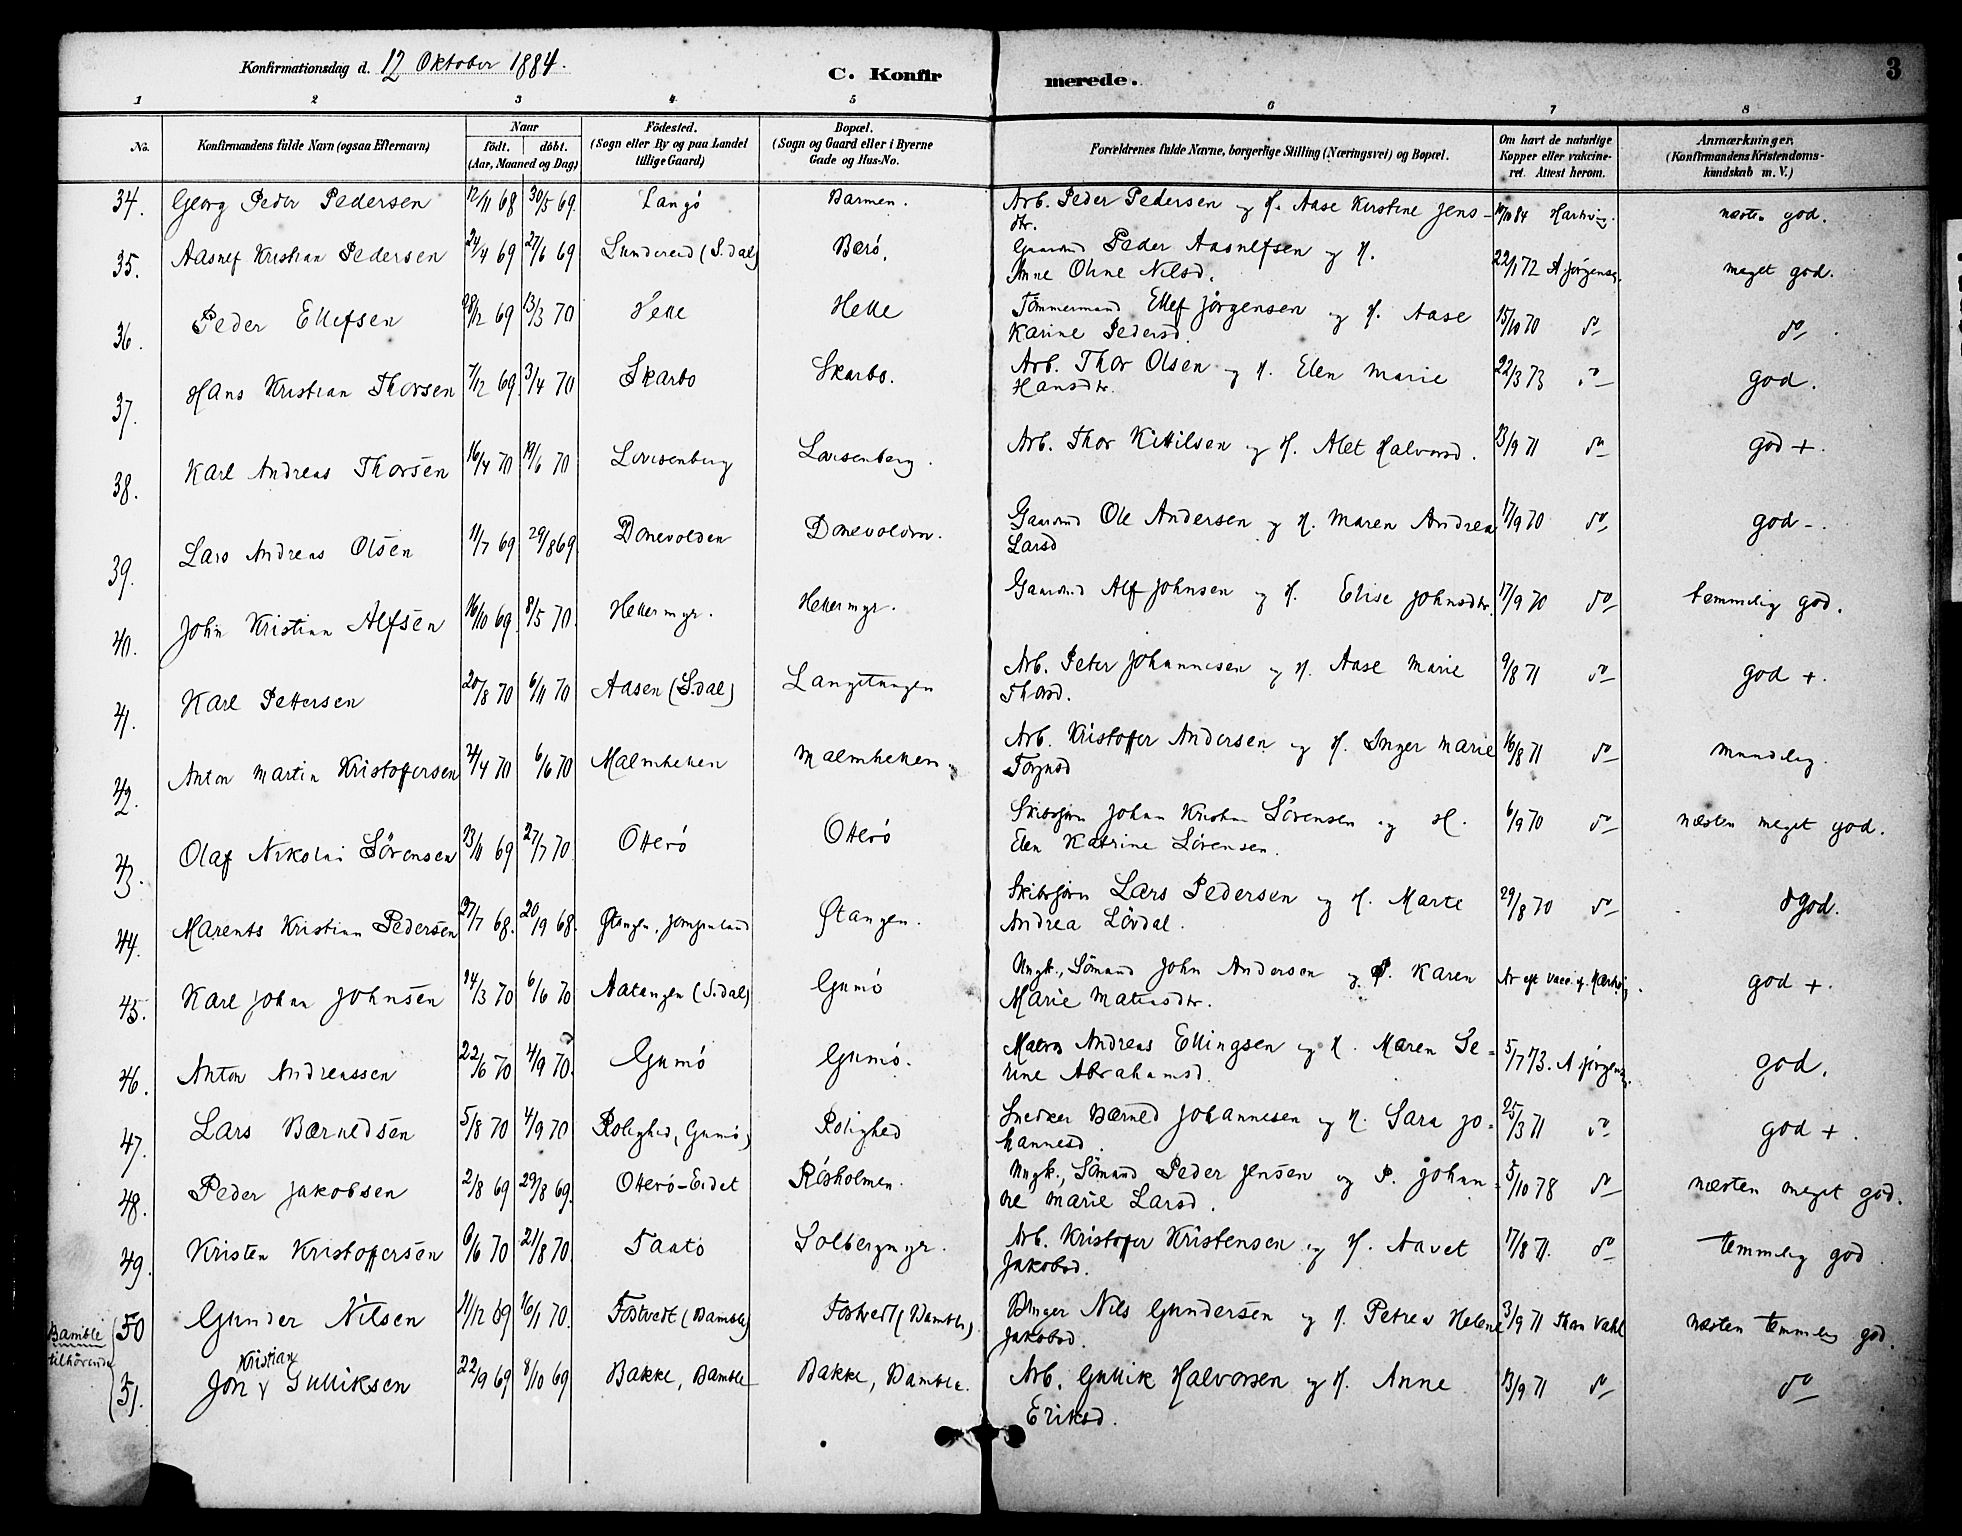 Konfirmationsdag d. 12 Oktober 1884.
C. Konfirmerede.
3
1 2 3 4 5 6 7 8
No.
Konfirmandens fulde Navn (ogsaa Efternavn)
Naar
födt. döbt.
(Aar, Maaned og Dag)
Födested.
(Sogn eller By og paa Landet
tillige Gaard)
Bopæl.
(Sogn og Gaard eller i Byerne
Gade og Hus-No.
Forældrenes fulde Navne, borgerlige Stilling (Næringsvei) og Bopæl.
Om havt de naturlige
Kopper eller vakcine-
ret. Attest herom.
Anmærkninger.
(Konfirmandens Kristendoms-
kundskab m. V.)
34. Georg Peder Pedersen 12/11 68 30/5 69. Langö Barmen. Arb. Peder Pedersen og H. Aase Kirstine Jens- 84 næsten god.
dtr.
35. Aasulf Kristian Pedersen 24/4 69 27/6 69 Lundereid (S.dal) Berö. Gaardmd Peder Aasulfsen og H. 22/1 72 A Jörgensen. meget god.
Anne Oline Nilsd.
36. Peder Ellefsen 28/12 69 13/3 70 Helle Helle Tömmermand Ellef Jörgensen og H. Aase 15/10 70 do do
Karine Pedersd.
37. Hans Kristian Thorsen 7/12 69. 3/4 70 Skarbo Skarbo. Arb. Thor Olsen og H. Elen Marie 22/3 73 do god.
Hansdtr.
38. Karl Andreas Thorsen 16/4 70 19/6 70 Lovisenberg Lovisenberg. Arb. Thor Kittilsen og H. Alet Halvorsd. 23/9 71 do god +.
39. Lars Andreas Olsen 11/7 69 29/8 69. Donevolden Donevolden. Gaardmd Ole Andersen og H. Maren Andrea 17/9 70 do god -.
Larsd
40. John Kristian Alfsen 16/10 69. 8/5 70. Hellermyr. Hellermyr. Gaardmd Alf Johnsen og H. Elise Johnsdtr. 17/9 70 do temmelig god.
41. Karl Pettersen 20/8 70 6/11 70 Aasen (S.dal) Langetangen Arb. Peter Johannesen og H. Aase Marie 9/8 71 do god +.
Thorsd.
42. Anton Martin Kristofersen 21/4 70 6/6 70 Malmhellen Malmhellen. Arb. Kristoffer Andersen og H. Inger Marie 16/8 71 do maadelig.
43. Olaf Nikolai Sörensen 23/11 69 27/7 70. Otterö Otterö Skibsförer Johan Kristian Sörensen og H. 6/9 70 do næsten meget god.
Elen Katrine Sörensen.
44. Marents Kristian Pedersen 27/7 68. 20/9 68. Stangen. Skibsförer Lars Pedersen og H. Marte 29/8 70 do god.
Andrea Lövdal.
45. Karl Johan Johnsen 14/3 70 6/6 70 Aatangen (S.dal) Gumö Ungk., Sömand John Andersen og P. Karen god +.
Marie
46. Anton Andreassen 22/6 70 4/9 70. Gumö Gumö. Matros Andreas Ellingsen og H. Maren Se- 5/7 73. A Jörgensen. god.
rine Abrahamsd.
47. Lars Bærnedsen 5/8 70 4/9 70 Rolighed, (Gumö) Rolighed Snedker Bærned Johannesen og H. Sara Jo- 25/3 71 do god +.
hannesd.
48. Peder Jakobsen 2/8 69 29/8 69. Otterö-Eidet Rösholmen. Ungk., Sömand Peder Jensen og P. Johan- 5/10 78 do næsten meget god.
ne Marie Larsd.
49. Kristen Kristoffersen 6/6 70 21/8 70. Taatö Solbergmyr. Arb. Kristofer Kristensen og H. Aavet 17/8 71. do temmelig god
Jakobsd.
Bamble
tilhörende
50 Gunder Nilsen 11/12 69 16/1 70. Fostvedt (Bamble) Fostvedt (Bamble). Nils Gundersen og H. Petrea Helene 3/9 71 Than Vahl næsten temmelig god.
Jakobsd.
Kristian
51. Jon Gulliksen 22/9 69 8/10 69 Bakke, Bamble Bakke, Bamble. Arb. Gullik Halvorsen og H. Anne 23/9 71 do do
Eriksd.